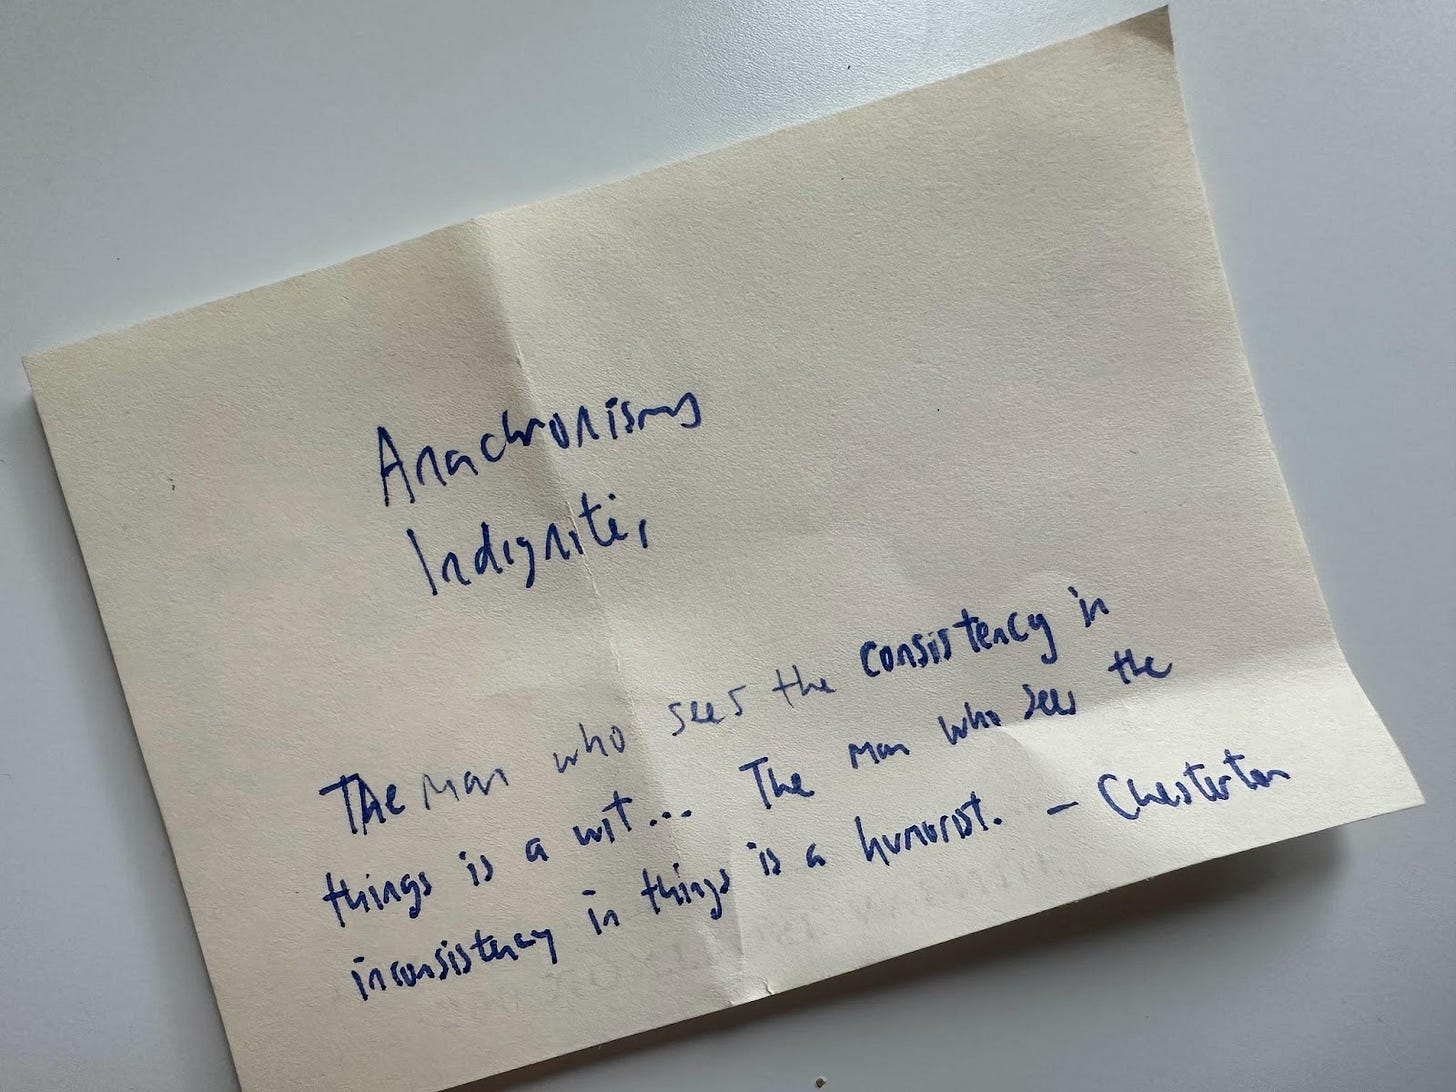 Anachronisms
Indignities
The man who sees the consistency in
things is a wit... The man who sees the
inconsistency in things is a humorist. - Chesterton